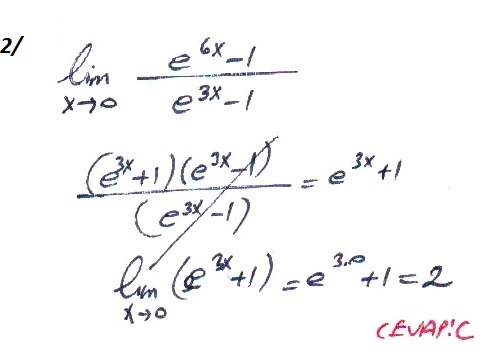 2/
lim x→0 (e^6x - 1)/(e^3x - 1)
(e^3x + 1)(e^3x - 1)/(e^3x - 1) = e^3x + 1
lim x→0 (e^3x + 1) = e^3.0 + 1 = 2
CEVAP:C